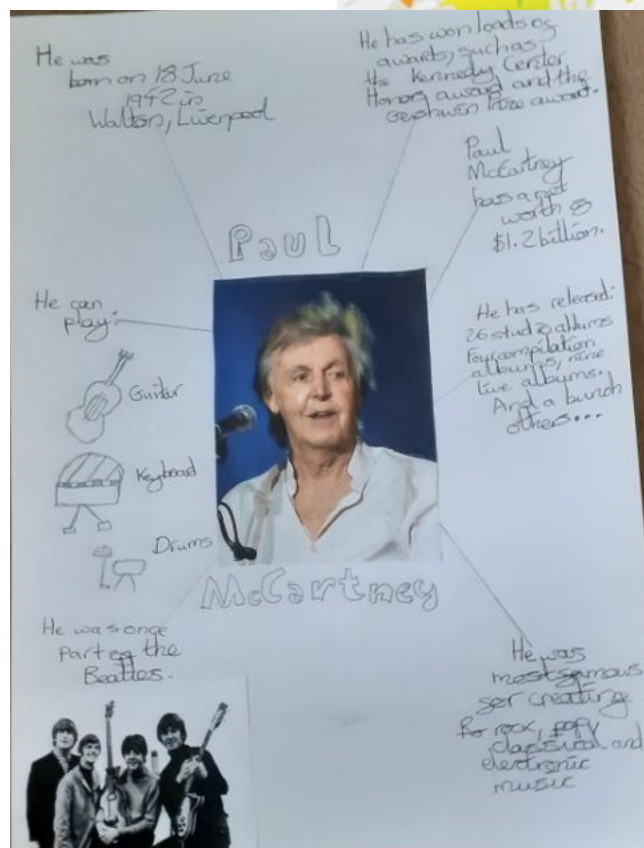 He was
born on 18 June
1942 in
Walton, Liverpool
He has won loads of
awards, such as
the Kennedy Center
Honors award and the
Gershwin Prize award.
Paul
McCartney
has a net
worth of
$1.2 billion.
Paul
He can
play:
Guitar
Keyboard
Drums
He has released:
26 studio albums
Four compilation
albums, nine
live albums.
And a bunch
others...
McCartney
He was once
Part of the
Beatles.
He was
most famous
for creating
rock,
classical and
electronic
music